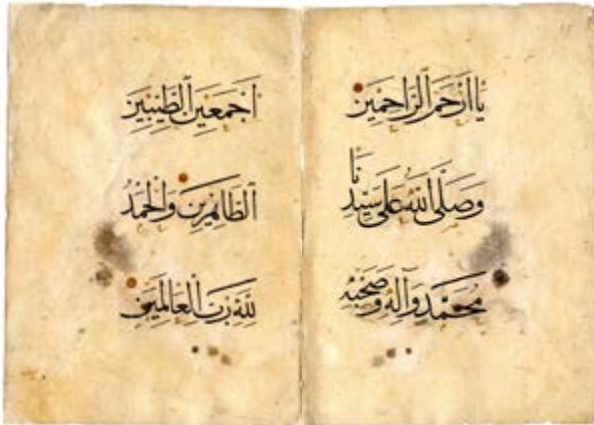 يَا أَرْحَمَ الرَّاحِمِينَ
وَصَلَّى اللهُ عَلَى سَيِّدِنَا
مُحَمَّدٍ وَآلِهِ وَصَحْبِهِ
أَجْمَعِينَ الطَّيِّبِينَ
الطَّاهِرِينَ وَالْحَمْدُ
لِلَّهِ رَبِّ الْعَالَمِينَ